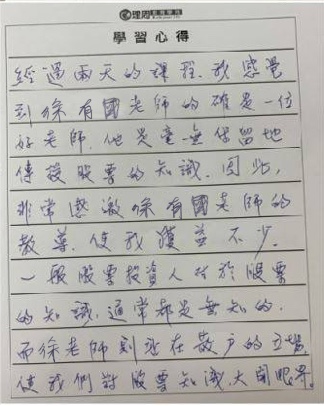 理周教育學苑
學習心得
經過兩天的課程,我感覺
到徐有國老師的確是一位
好老師,他是毫無保留地
傳授股票的知識,因此,
非常感激徐有國老師的
教導,使我獲益不少,
一般股票投資人對於股票
的知識,通常都是無知的,
而徐老師則站在散戶的立場,
使我們對股票知識,大開眼界,